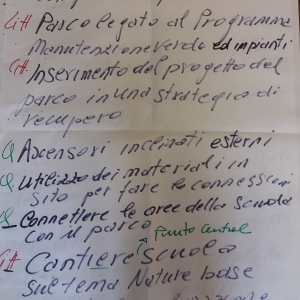 Cit Parco legato al Programma
Manutenzione verde ed impianti
Cit. Inserimento del progetto del
parco in una strategia di
recupero
Q Ascensori inclinati esterni
Q. Utilizzo dei materiali in
sito per fare le connessioni
Q – Connettere le aree della scuola
con il parco
Punto Central
Cit Cantiere scuola
sul tema Nature base